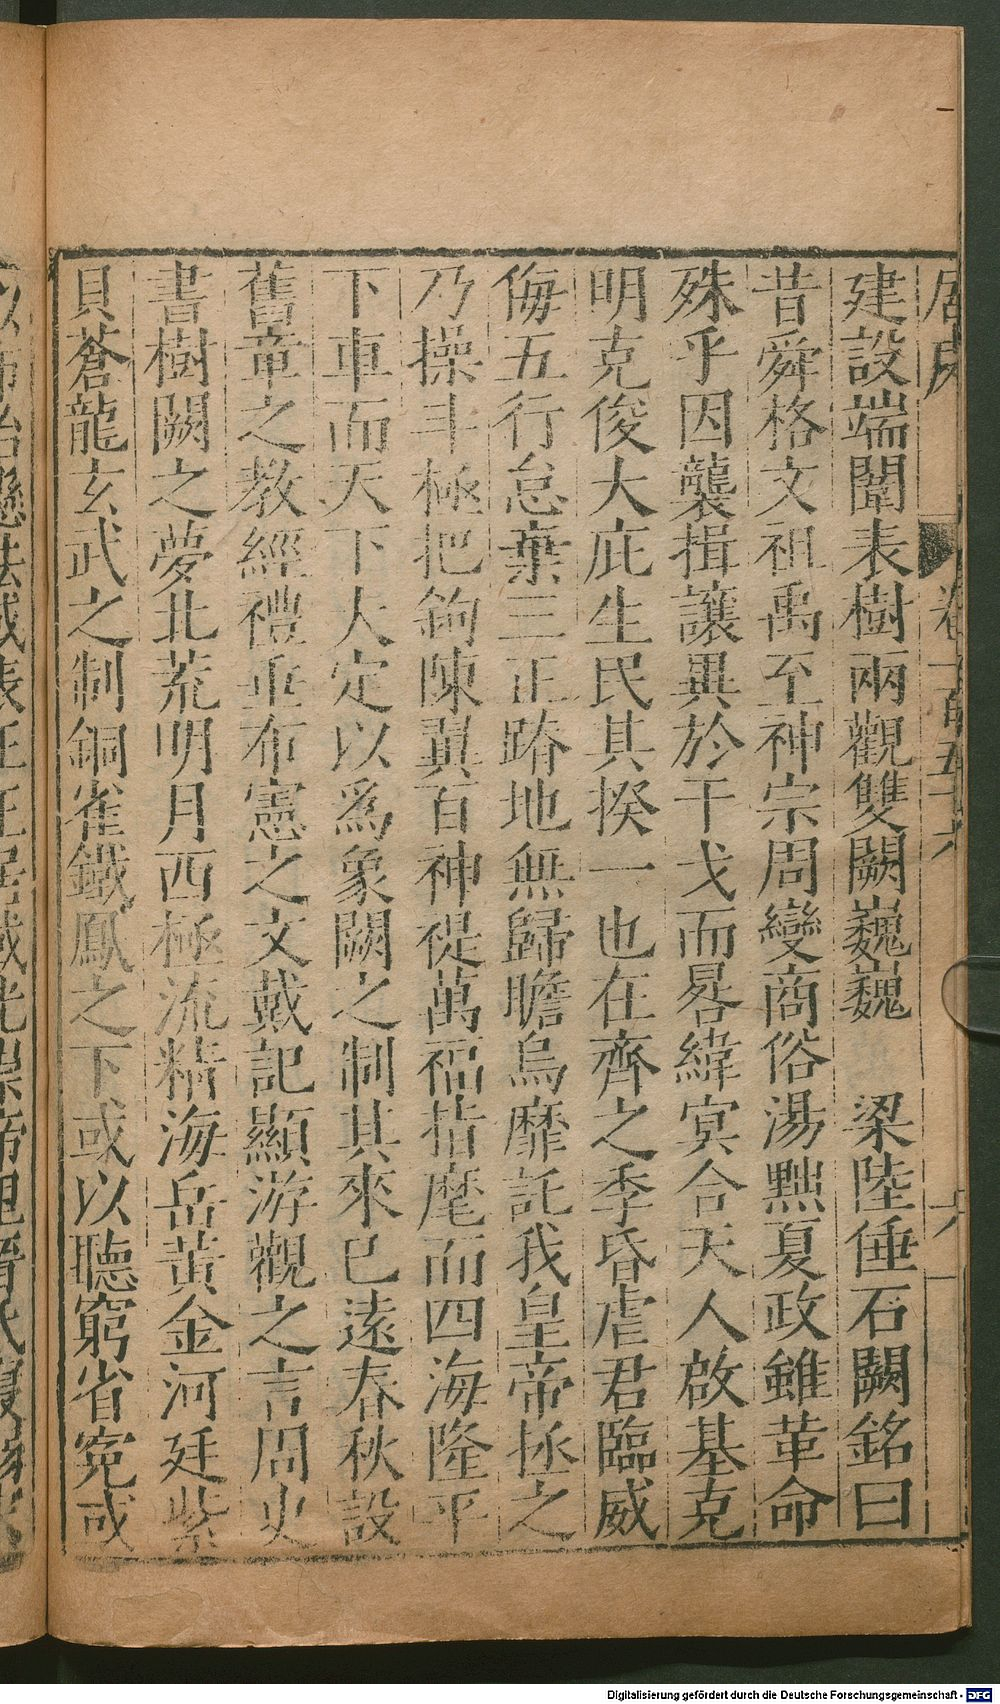 居處 卷一百五十六 六
建設端闈表樹兩觀雙闕巍巍 梁陸倕石闕銘曰
昔舜格文祖禹至神宗周變商俗湯黜夏政雖革命
殊乎因襲揖讓異於干戈而晷緯冥合天人啟基克
明克俊大庇生民其揆一也在齊之季昏虐君臨威
侮五行怠棄三正蹐地無歸瞻烏靡託我皇帝拯之
乃操斗極把鉤陳翼百神禔萬福拮麾而四海隆平
下車而天下大定以爲象闕之制其來已遠春秋設
舊章之教經禮垂布憲之文戴記顯游觀之言周史
書樹闕之夢北荒明月西極流精海岳黃金河廷紫
貝蒼龍玄武之制銅雀鐵鳳之下或以聽窮省寃或
Digitalisierung gefördert durch die Deutsche Forschungsgemeinschaft - DFG